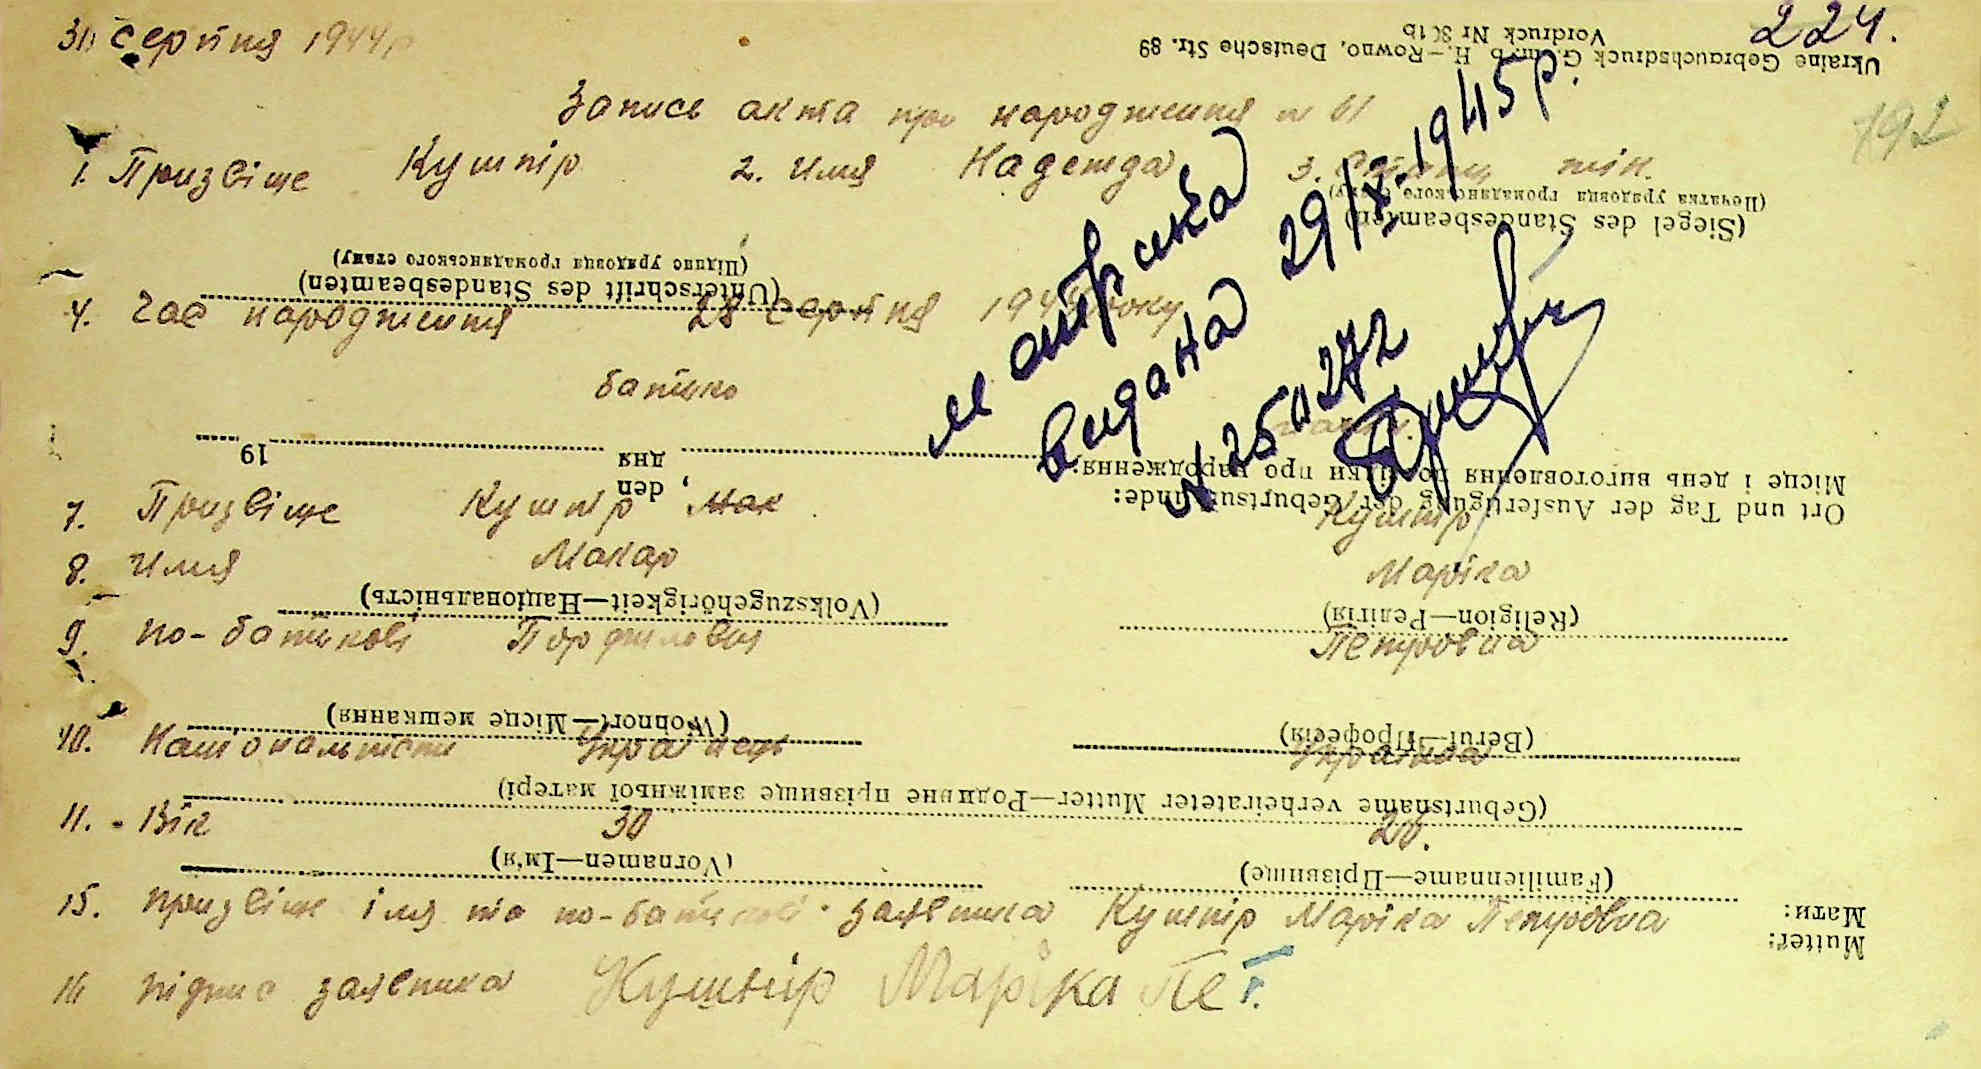 31 серпня 1944р
224.
192
Запись акта про народження № 61
1. Призвіще Кушнір 2. Имя Надежда 3. Стать жін.
4. Час народження 28 серпня 1944 року
батько
7. Призвіще Кушнір Мак Кушнір
8. Имя Макар Маріка
9. по-батькові Порфилович Петровна
10. Національность Українець Українка
11. Вік 30 26.
15. призвіще імя та по-батькові заявника Кушнір Маріка Петровна
16 підпис заявника Кушнір Маріка Пет.
матрика
видана 29/X-1945р.
№ 250272
Ukraine Gebrauchsdruck G. m. b. H.—Rowno, Deutsche Str. 89
Vordruck Nr 301b
(Siegel des Standesbeamten)
(Печатка урядовця громадянського стану)
(Unterschrift des Standesbeamten)
(Підпис урядовця громадянського стану)
Ort und Tag der Ausfertigung der Geburtsurkunde:
Місце і день виготовлення посвідки про народження:
, den
дня
19
(Religion—Релігія)
(Volkszugehörigkeit—Національність)
(Beruf—Професія)
(Wohnort—Місце мешкання)
(Geburtsname verheirateter Mutter—Родинне прізвище заміжньої матері)
(Familienname—Прізвище)
(Vornamen—Ім'я)
Mutter:
Мати: